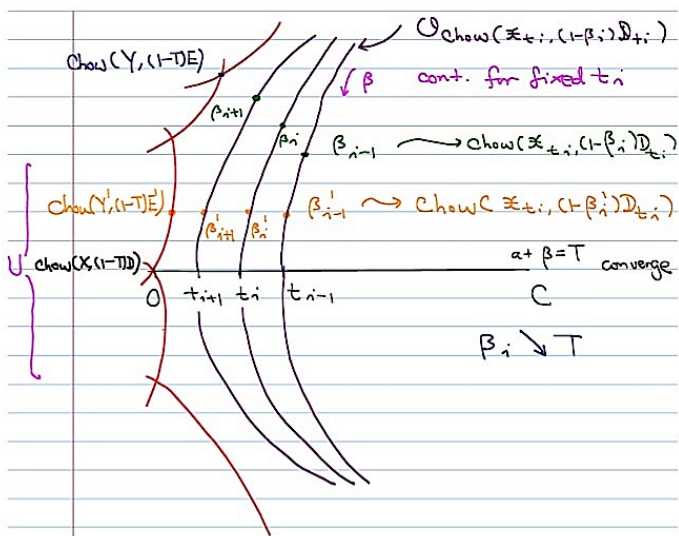 O Chow(𝔛_{t_i}, (1-β_i)D_{t_i})
Chow(Y, (1-T)E)
β cont. for fixed t_i
β_{i+1}
β_i
β_{i-1} ⟶ Chow(𝔛_{t_i}, (1-β_i)D_{t_i})
Chow(Y', (1-T)E') β'_{i+1} β'_i β'_{i-1} ⟶ Chow(𝔛_{t_i}, (1-β'_i)D_{t_i})
U Chow(X, (1-T)D) at β=T converge
0 t_{i+1} t_i t_{i-1} C
β_i ↘ T